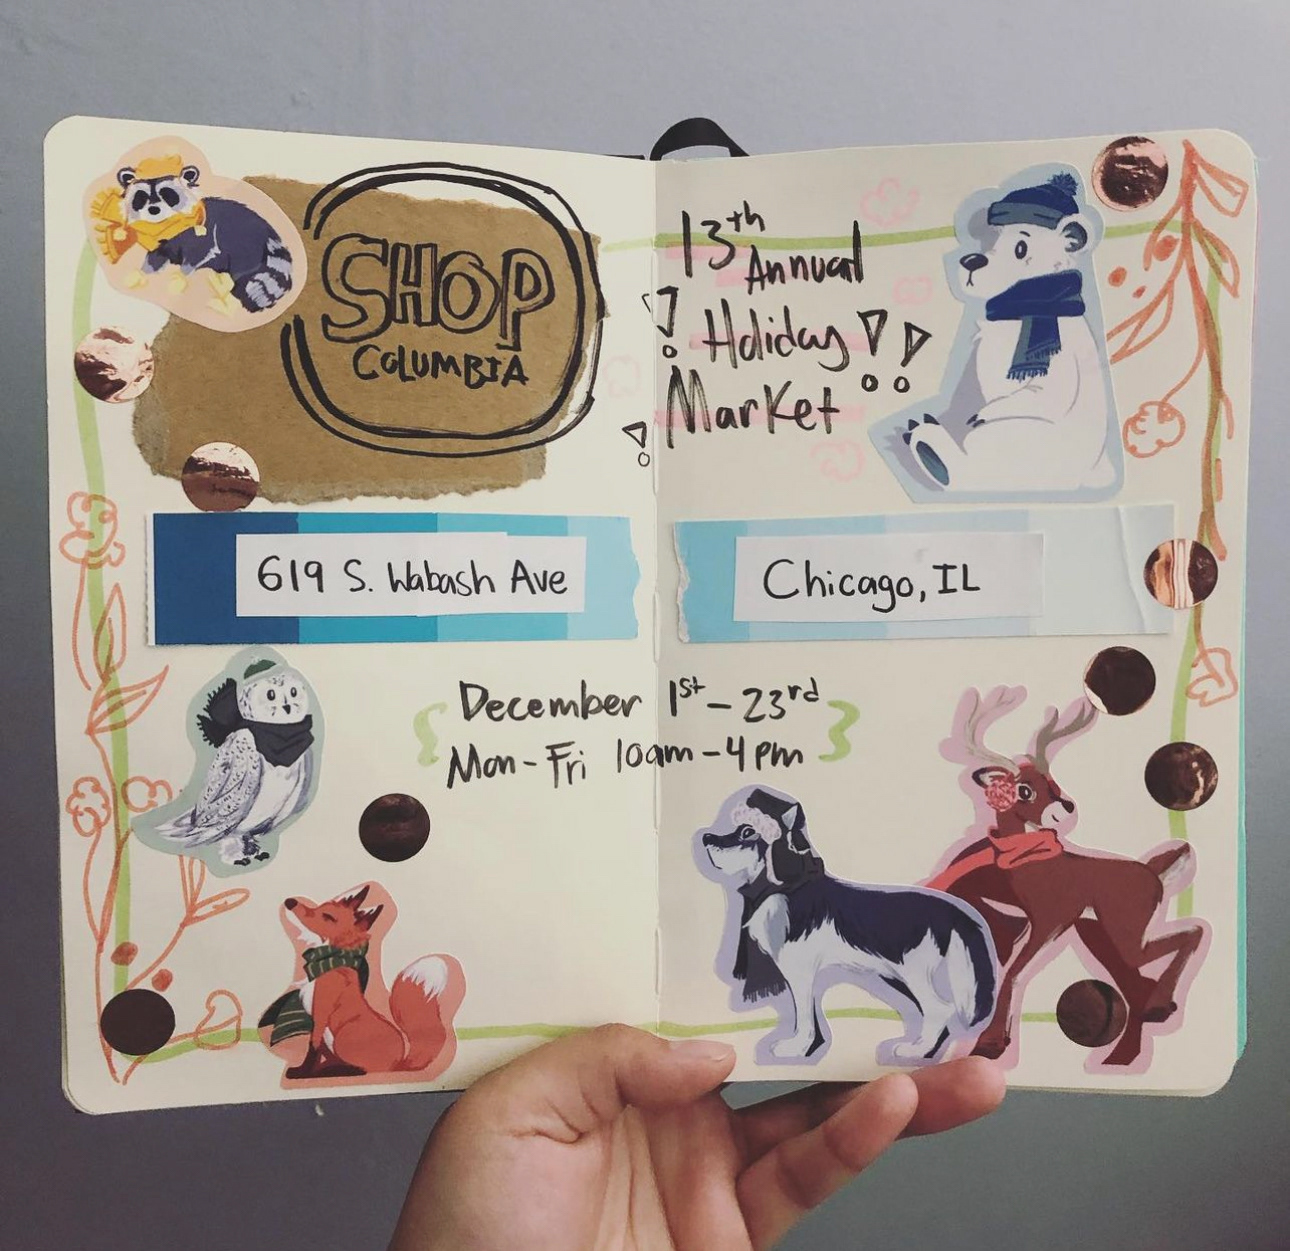 SHOP
COLUMBIA
13th
Annual
Holiday!!
Market
619 S. Wabash Ave
Chicago, IL
December 1st - 23rd
Mon - Fri 10am - 4pm